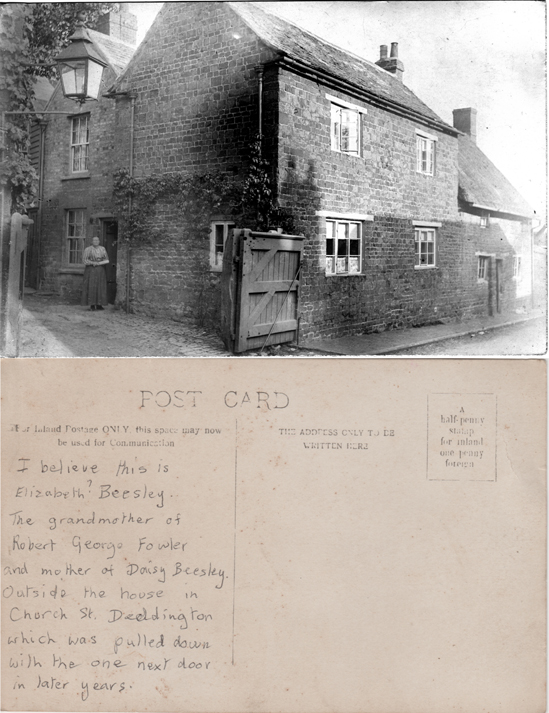 POST CARD
For Inland Postage ONLY, this space may now
be used for Communication
THE ADDRESS ONLY TO BE
WRITTEN HERE
A
half-penny
stamp
for inland
one penny
foreign
I believe this is
Elizabeth? Beesley.
The grandmother of
Robert George Fowler
and mother of Daisy Beesley.
Outside the house in
Church St. Deddington
which was pulled down
with the one next door
in later years.